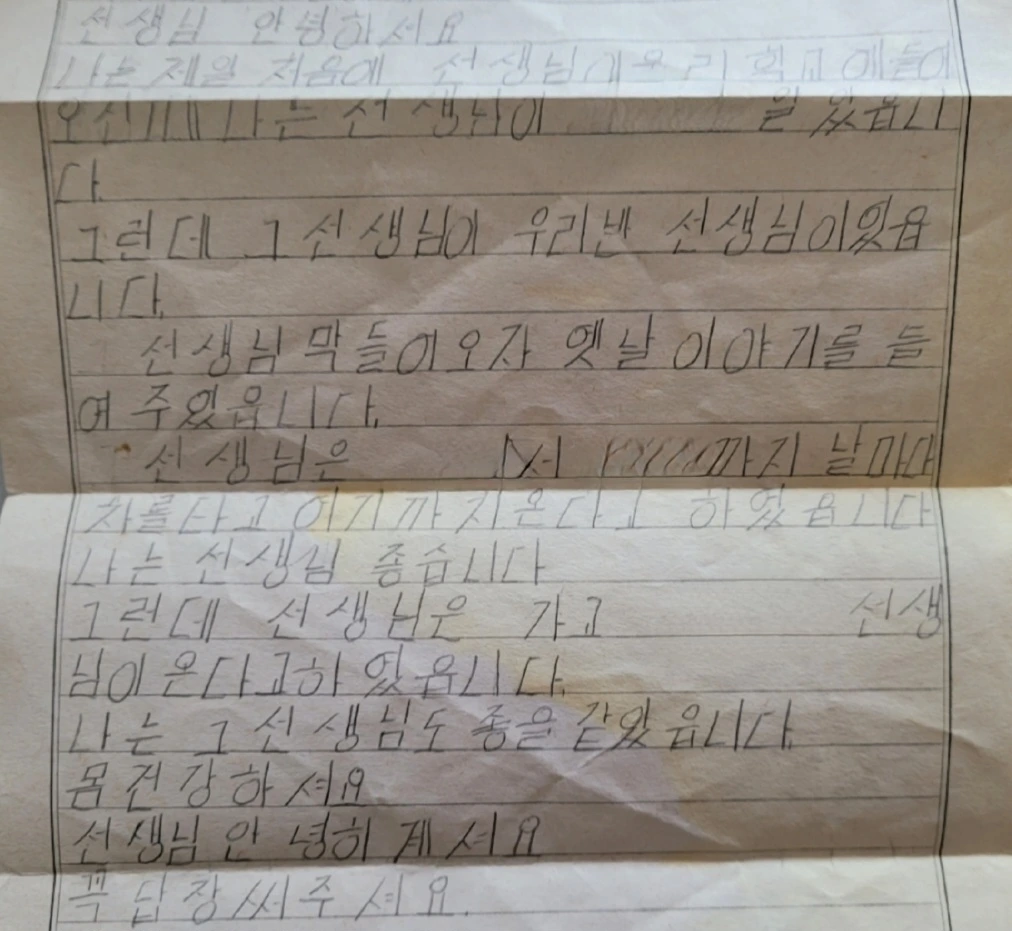 선생님 안녕하셔요
나는 제일 처음에 선생님에 우리 학교 애들에
오신 나는 선생님이 알았읍니
다.
그런데 그 선생님이 우리반 선생님이였읍
니다.
선생님 막들어오자 옛날 이야기를 들
여 주었읍니다.
선생님은 서 까지 날마다
차를타고 여기까지온다고 하였읍니다
나는 선생님 좋습니다
그런데 선생님은 가고 선생
님이 온다고하였읍니다.
나는 그 선생님도 좋을 같았읍니다.
몸건강하셔요
선생님 안녕히 계셔요
꼭 답장써주셔요.